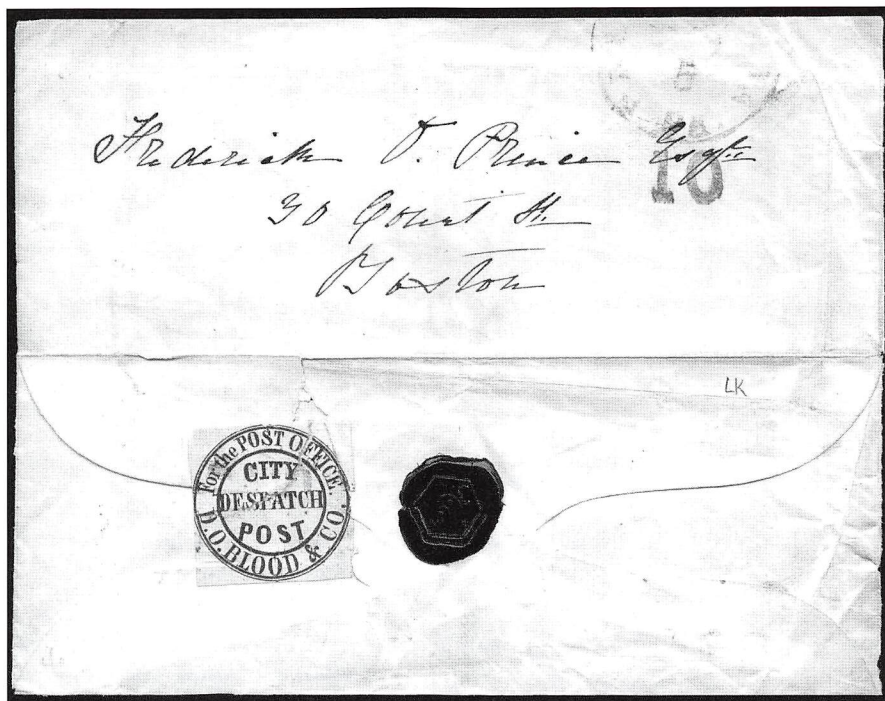 5
Frederick O. Prince Esqre
10
30 Court St.
Boston
LK
For the POST OFFICE.
CITY
DESPATCH
POST
D.O. BLOOD & CO.